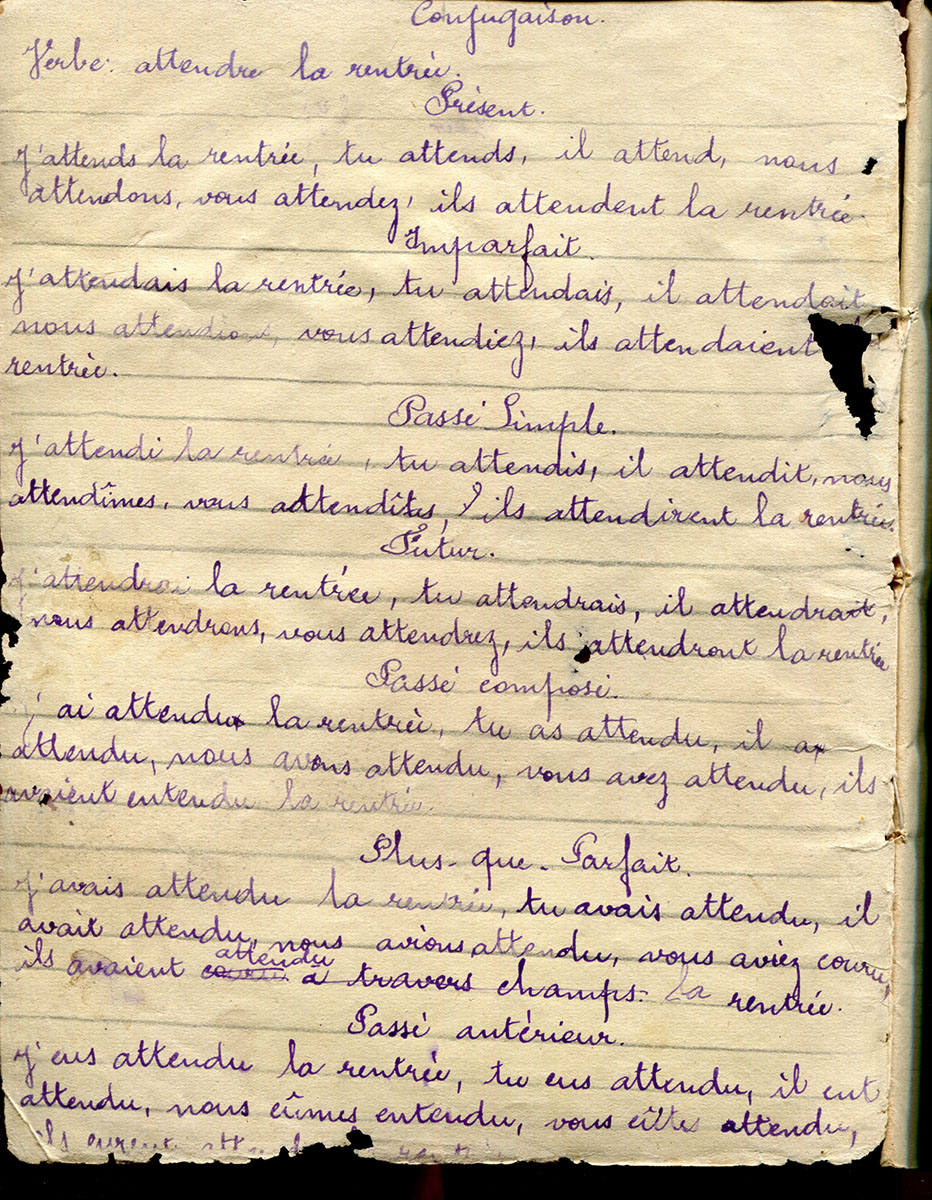 Conjugaison.
Verbe: attendre la rentrée.
Présent.
J'attends la rentrée, tu attends, il attend, nous
attendons, vous attendez, ils attendent la rentrée.
Imparfait.
J'attendais la rentrée, tu attendais, il attendait
nous attendions, vous attendiez, ils attendaient
rentrée.
Passé Simple.
J'attendi la rentrée, tu attendis, il attendit, nous
attendîmes, vous attendîtes, ils attendirent la rentrée.
Futur.
J'attendrai la rentrée, tu attendrais, il attendrait,
nous attendrons, vous attendrez, ils attendront la rentrée
Passé composé.
J'ai attendu la rentrée, tu as attendu, il a
attendu, nous avons attendu, vous avez attendu, ils
avaient entendu la rentrée.
Plus-que-Parfait.
J'avais attendu la rentrée, tu avais attendu, il
avait attendu, nous avions attendu, vous aviez couru,
attendu
ils avaient à travers champs la rentrée.
Passé antérieur.
J'eus attendu la rentrée, tu eus attendu, il eut
attendu, nous eûmes entendu, vous eûtes attendu,
ils eurent